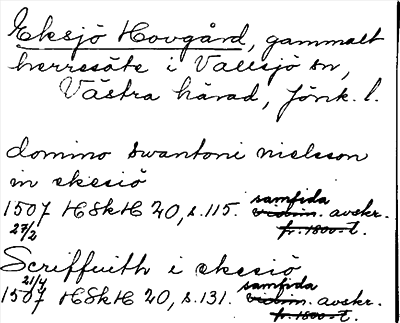 Eksjö Hovgård, gammalt
herresäte i Vallsjö sn,
Västra härad, Jönk. l.
domino swantoni nielsson
in eksiö
1507 27/2 HSkH 20, s. 115. samtida vidim. avskr. fr. 1800-t.
Scriffuith i eksiö
1507 21/4 HSkH 20, s. 131. samtida vidim. avskr. fr. 1800-t.